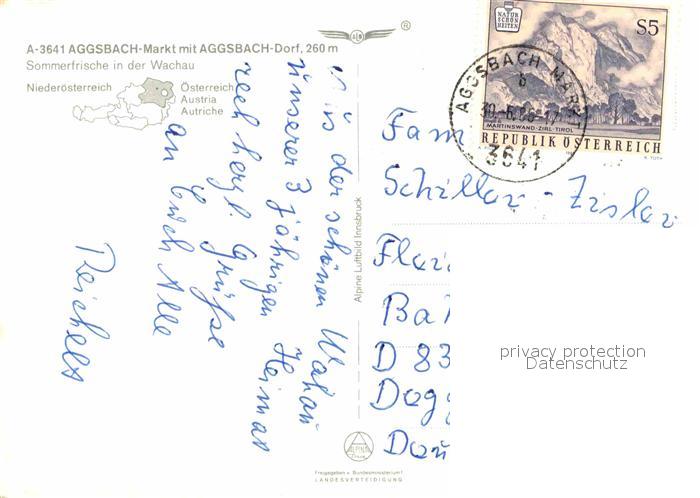 A-3641 AGGSBACH-Markt mit AGGSBACH-Dorf, 260 m
Sommerfrische in der Wachau
Niederösterreich
Österreich
Austria
Autriche
®
Aus der schönen Wachau
unserer 3 jährigen Heimat
recht herzl. Grüße
an Euch Alle
Reichelts
Alpine Luftbild Innsbruck
ALPINE
Freigegeben v. Bundesministerium f.
LANDESVERTEIDIGUNG
NATUR
SCHÖN
HEITEN
S5
MARTINSWAND-ZIRL-TIROL
REPUBLIK ÖSTERREICH
AGGSBACH MARKT
b
3641
Fam
Schiller-Zisler
Flori
Ba
D 83
Dogg
Dou
privacy protection
Datenschutz